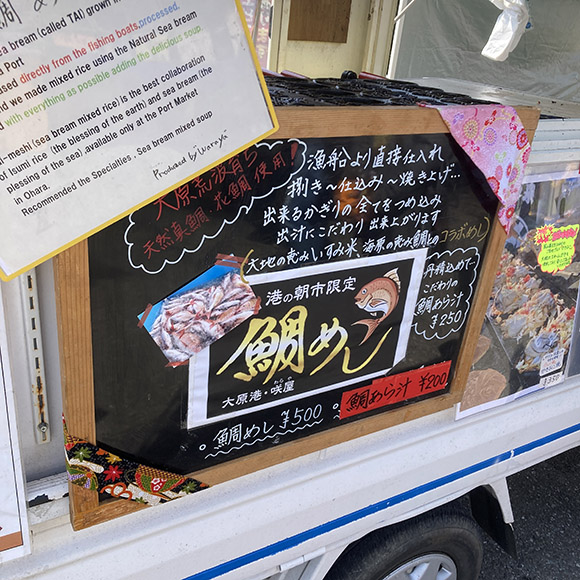 sea bream (called TAI) grown in
Port
directly from the fishing boats,processed,
we made mixed rice using the Natural Sea bream
with everything as possible adding the delicious soup
-meshi (sea bream mixed rice) is the best collaboration
of Isumi rice (the blessing of the earth) and sea bream (the
plessing of the sea) available only at the Port Market
in Ohara.
Recommended the Specialties, Sea bream mixed soup
Produced by Waraya
大原荒波育ち
天然真鯛・花鯛使用!
漁船より直接仕入れ
捌き〜仕込み〜焼き上げ…
出来るかぎりの全てをつめ込み
出汁にこだわり出来上がります
大地の恵みいすみ米、海原の恵み鯛とのコラボめし
丹精込めて
こだわりの
鯛あら汁
¥250
港の朝市限定
鯛めし
大原港・咲屋
鯛めし ¥500
鯛あら汁 ¥200